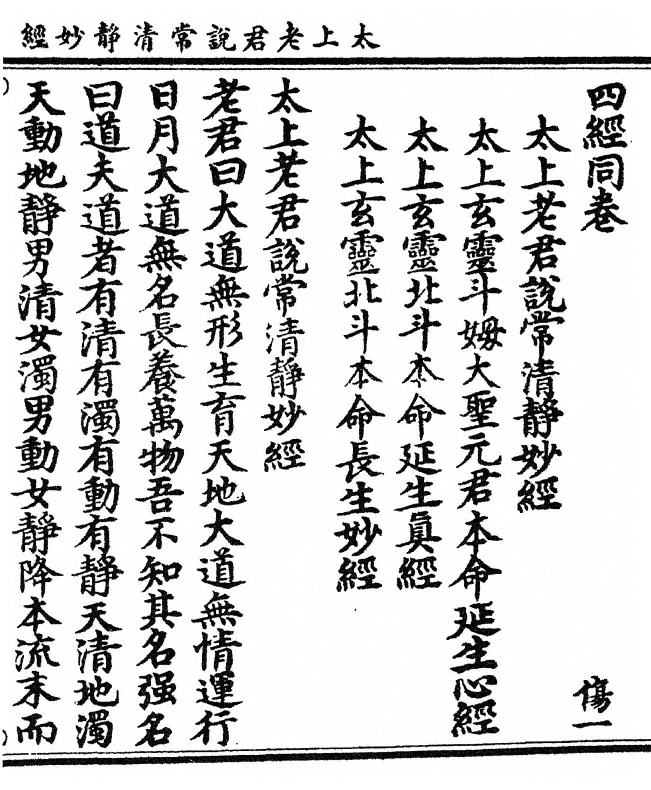 太上老君說常清靜妙經
四經同卷
傷一
太上老君說常清靜妙經
太上玄靈斗姆大聖元君本命延生心經
太上玄靈北斗本命延生眞經
太上玄靈北斗本命長生妙經
太上老君說常清靜妙經
老君曰大道無形生育天地大道無情運行
日月大道無名長養萬物吾不知其名强名
曰道夫道者有清有濁有動有靜天清地濁
天動地靜男清女濁男動女靜降本流末而